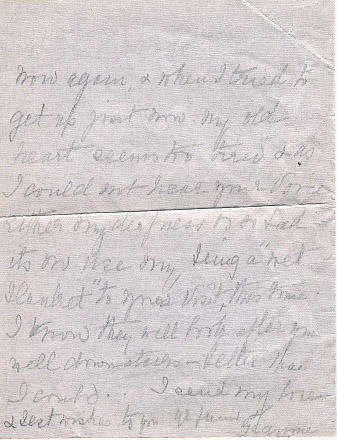 now again, & when I tried to
get up just now my old
heart seems too tired & as
I could not hear your voice
either my deafness is so bad
its no use my being a "wet
blanket" to your visit, this time.
I know they will look after you
well downstairs - better than
I could. .. I send my love
& best wishes to you